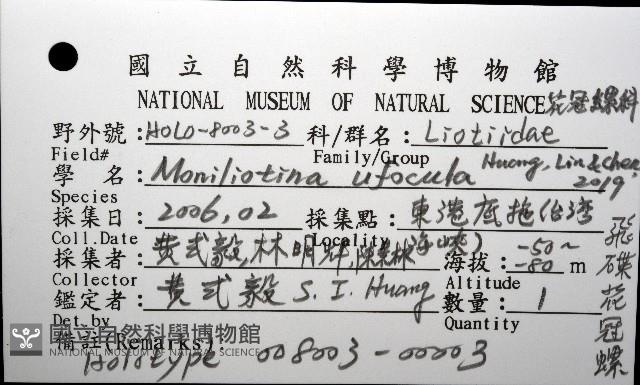 國立自然科學博物館
NATIONAL MUSEUM OF NATURAL SCIENCE 花冠螺科
野外號:HOLO-8003-3 科/群名:Liotiidae
Field# Family/Group
學名:Moniliotina ufocula Huang, Lin & Chen 2019
Species
採集日:2006,02 採集點:東港底拖(台灣海峽)
Coll.Date Locality
採集者:黃式毅,林明輝, 海拔:-50~-80m
Collector Altitude
鑑定者:黃式毅 S. I. Huang 數量:1
Det.by Quantity
備註(Remarks):
Holotype 008003-00003
飛碟花冠螺
國立自然科學博物館
NATIONAL MUSEUM OF NATURAL SCIENCE